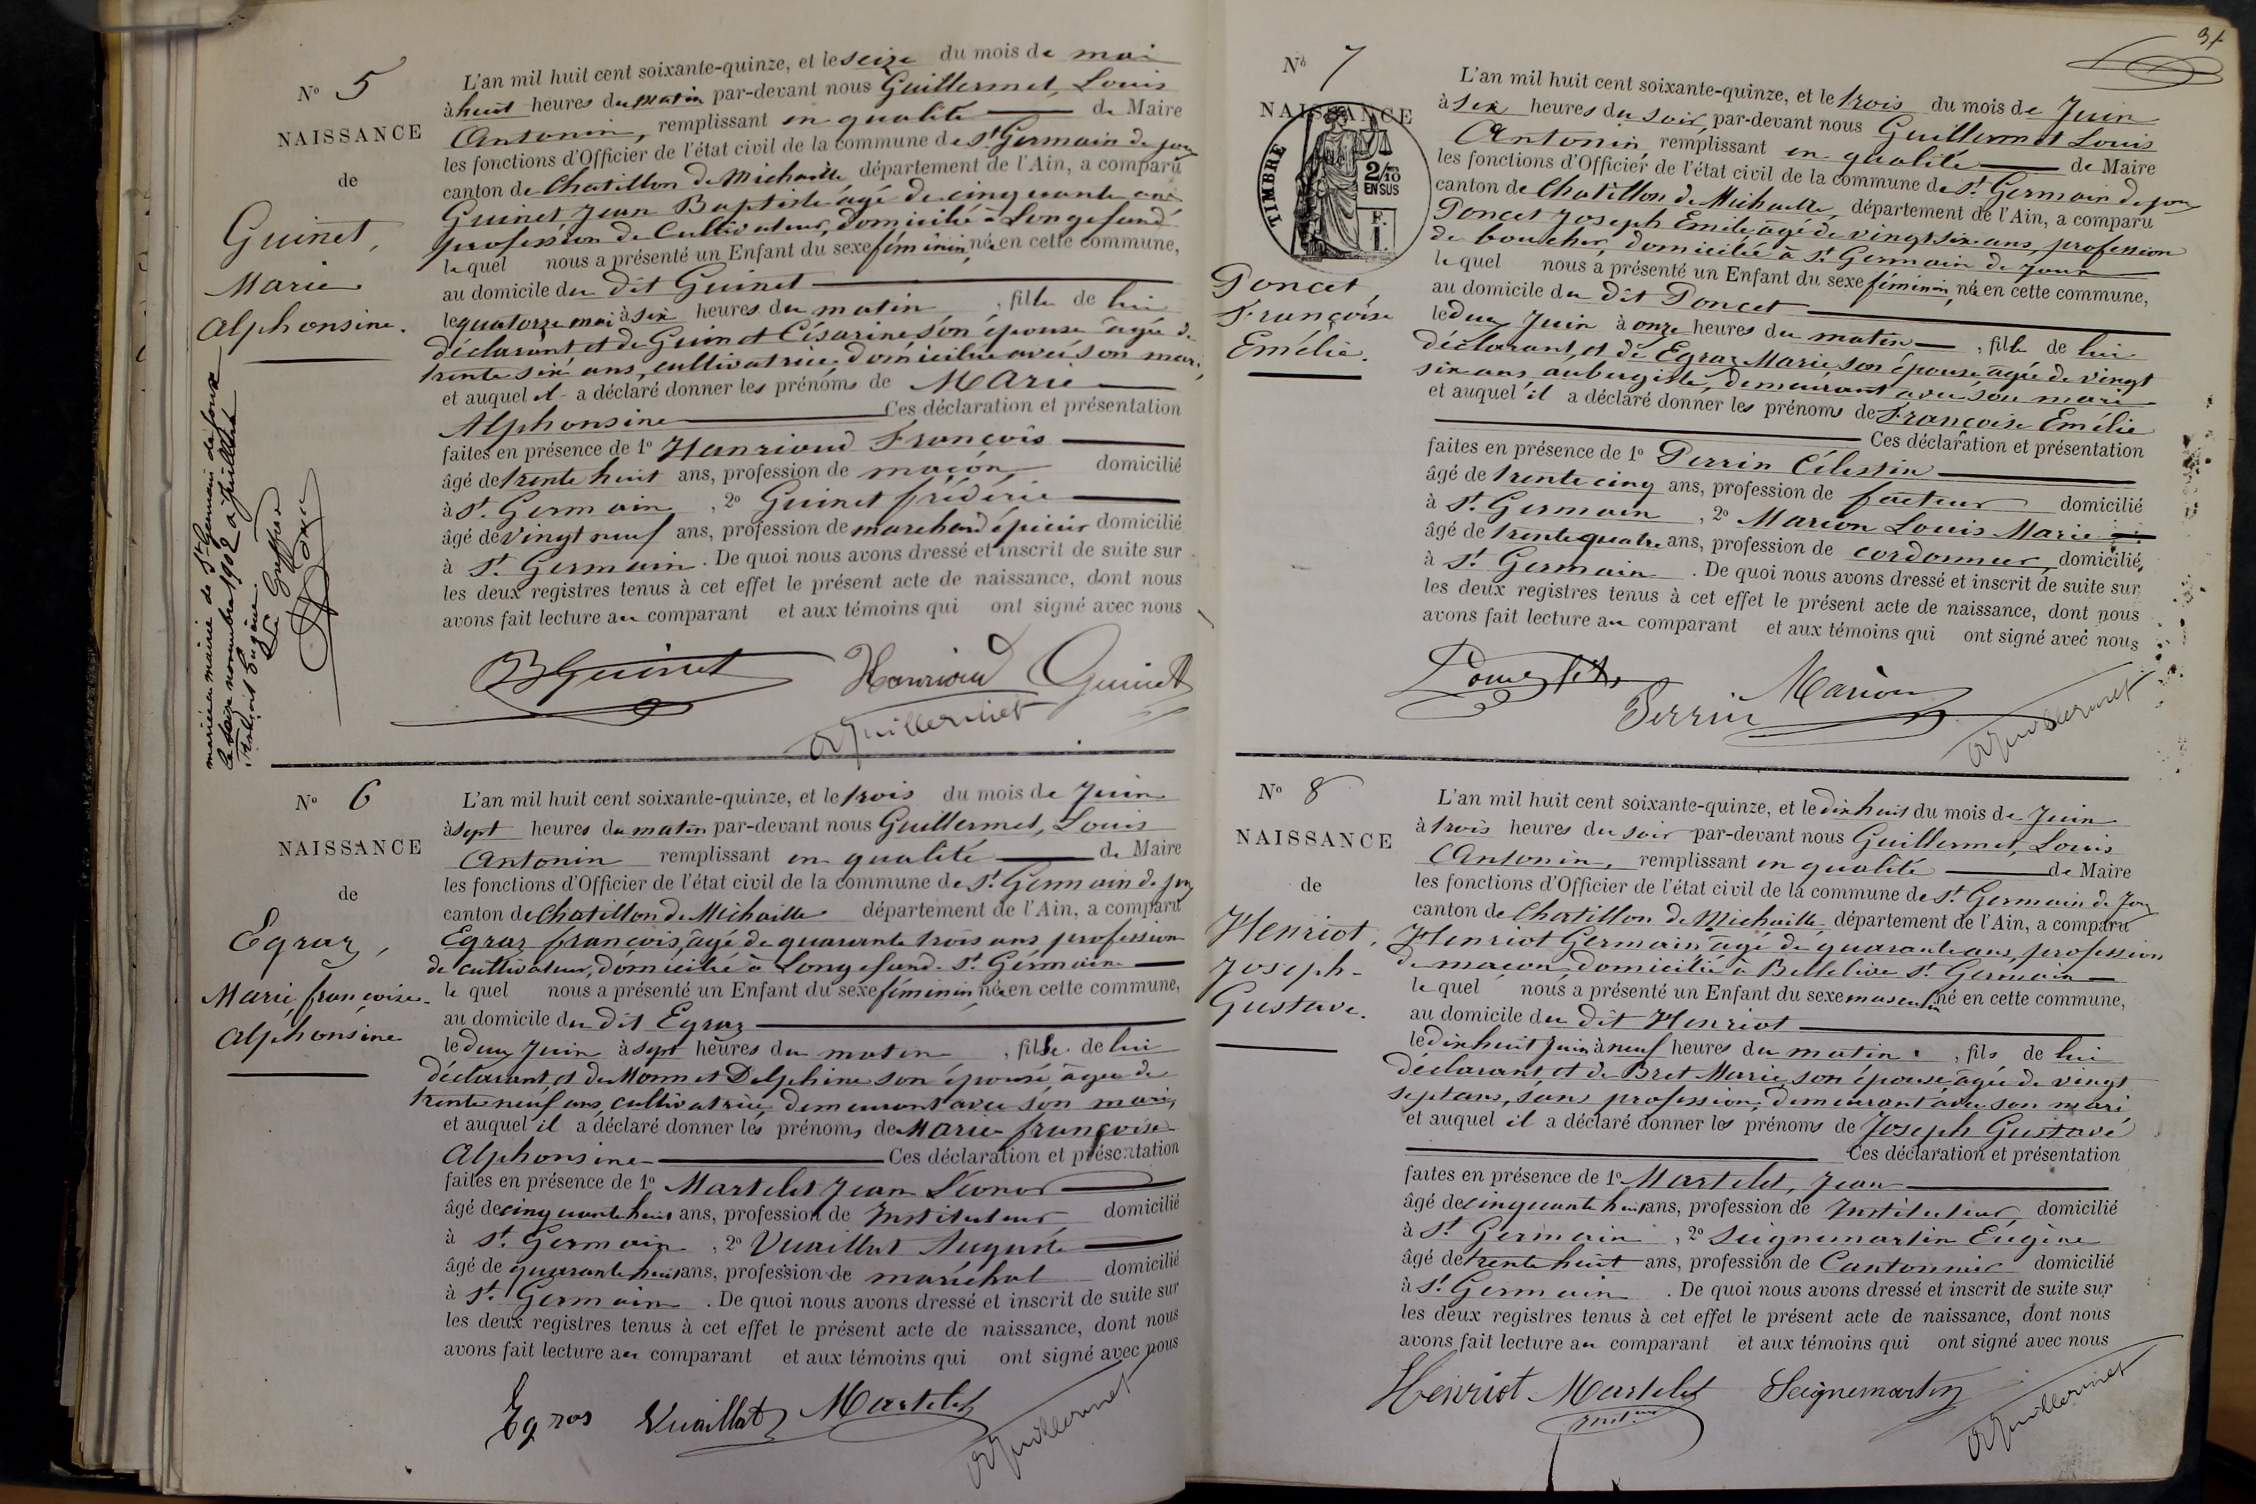 N° 5
NAISSANCE
de
Guinet,
Marie
Alphonsine.
mariée en mairie de St Germain de Joux
le seize novembre 1902 à
Eugène
Le Greffier
L'an mil huit cent soixante-quinze, et le seize du mois de mai
à huit heures du matin par-devant nous Guillermet, Louis
Antonin, remplissant en qualité de Maire
les fonctions d'Officier de l'état civil de la commune de St Germain de Joux
canton de Chatillon de Michaille département de l'Ain, a comparu
Guinet Jean Baptiste âgé de cinquante ans
profession de Cultivateur, domicilié à Longefand
lequel nous a présenté un Enfant du sexe féminin, née en cette commune,
au domicile du dit Guinet
le quatorze mai à six heures du matin, fille de lui
déclarant et de Guinet Césarine son épouse âgée de
trente six ans, cultivatrice, domiciliée avec son mari,
et auquel il a déclaré donner les prénoms de Marie
Alphonsine Ces déclaration et présentation
faites en présence de 1° Hanrioud François
âgé de trente huit ans, profession de maçon domicilié
à St. Germain, 2° Guinet frédéric
âgé de vingt neuf ans, profession de marchand épicier domicilié
à St. Germain. De quoi nous avons dressé et inscrit de suite sur
les deux registres tenus à cet effet le présent acte de naissance, dont nous
avons fait lecture au comparant et aux témoins qui ont signé avec nous
B Guinet Hanrioud Guinet
A Guillermet
N° 6
NAISSANCE
de
Egraz,
Marie françoise
Alphonsine
L'an mil huit cent soixante-quinze, et le trois du mois de Juin
à sept heures du matin par-devant nous Guillermet, Louis
Antonin remplissant en qualité de Maire
les fonctions d'Officier de l'état civil de la commune de St. Germain de Joux
canton de Chatillon de Michaille département de l'Ain, a comparu
Egraz françois, âgé de quarante trois ans profession
de cultivateur, domicilié à Longefand. St. Germain
lequel nous a présenté un Enfant du sexe féminin, née en cette commune,
au domicile du dit Egraz
le deux Juin à sept heures du matin, fille de lui
déclarant et de Monnet Delphine son épouse, âgée de
trente neuf ans, cultivatrice, demeurant avec son mari,
et auquel il a déclaré donner les prénoms de Marie françoise
Alphonsine Ces déclaration et présentation
faites en présence de 1° Martelet Jean Léonor
âgé de cinquante huit ans, profession de Instituteur domicilié
à St. Germain, 2° Vuaillat Auguste
âgé de quarante huit ans, profession de maréchal domicilié
à St. Germain. De quoi nous avons dressé et inscrit de suite sur
les deux registres tenus à cet effet le présent acte de naissance, dont nous
avons fait lecture au comparant et aux témoins qui ont signé avec nous
Egras Vuaillat Martelet
A Guillermet
31
N° 7
NAISSANCE
TIMBRE
2/10
EN SUS
F.
1.
Poncet,
Françoise
Emélie.
L'an mil huit cent soixante-quinze, et le trois du mois de Juin
à six heures du soir, par-devant nous Guillermet Louis
Antonin remplissant en qualité de Maire
les fonctions d'Officier de l'état civil de la commune de St. Germain de Joux
canton de Chatillon de Michaille, département de l'Ain, a comparu
Poncet Joseph Emile âgé de vingt six ans, profession
de boucher, domicilié à St. Germain de Joux
lequel nous a présenté un Enfant du sexe féminin, née en cette commune,
au domicile du dit Poncet
le deux Juin à onze heures du matin, fille de lui
déclarant, et de Egraz Marie son épouse âgée de vingt
six ans, aubergiste, demeurant avec son mari
et auquel il a déclaré donner les prénoms de Françoise Emélie
Ces déclaration et présentation
faites en présence de 1° Perrin Célestin
âgé de trente cinq ans, profession de facteur domicilié
à St. Germain, 2° Marion Louis Marie
âgé de trente quatre ans, profession de cordonnier domicilié,
à St. Germain. De quoi nous avons dressé et inscrit de suite sur
les deux registres tenus à cet effet le présent acte de naissance, dont nous
avons fait lecture au comparant et aux témoins qui ont signé avec nous
Poncet Perrin Marion
A Guillermet
N° 8
NAISSANCE
de
Henriot,
Joseph-
Gustave.
L'an mil huit cent soixante-quinze, et le dix huit du mois de Juin
à trois heures du soir par-devant nous Guillermet, Louis
Antonin, remplissant en qualité de Maire
les fonctions d'Officier de l'état civil de la commune de St. Germain de Joux
canton de Chatillon de Michaille, département de l'Ain, a comparu
Henriot Germain âgé de quarante ans, profession
de maçon, domicilié à Bellelive St. Germain
lequel nous a présenté un Enfant du sexe masculin né en cette commune,
au domicile du dit Henriot
le dix huit Juin à neuf heures du matin, fils de lui
déclarant et de Bret Marie, son épouse âgée de vingt
sept ans, sans profession, demeurant avec son mari
et auquel il a déclaré donner les prénoms de Joseph Gustave
Ces déclaration et présentation
faites en présence de 1° Martelet, Jean
âgé de cinquante huit ans, profession de Instituteur domicilié
à St. Germain, 2° Seignemartin Eugène
âgé de trente huit ans, profession de Cantonnier domicilié
à St. Germain. De quoi nous avons dressé et inscrit de suite sur
les deux registres tenus à cet effet le présent acte de naissance, dont nous
avons fait lecture au comparant et aux témoins qui ont signé avec nous
Henriot Martelet Seignemartin
A Guillermet